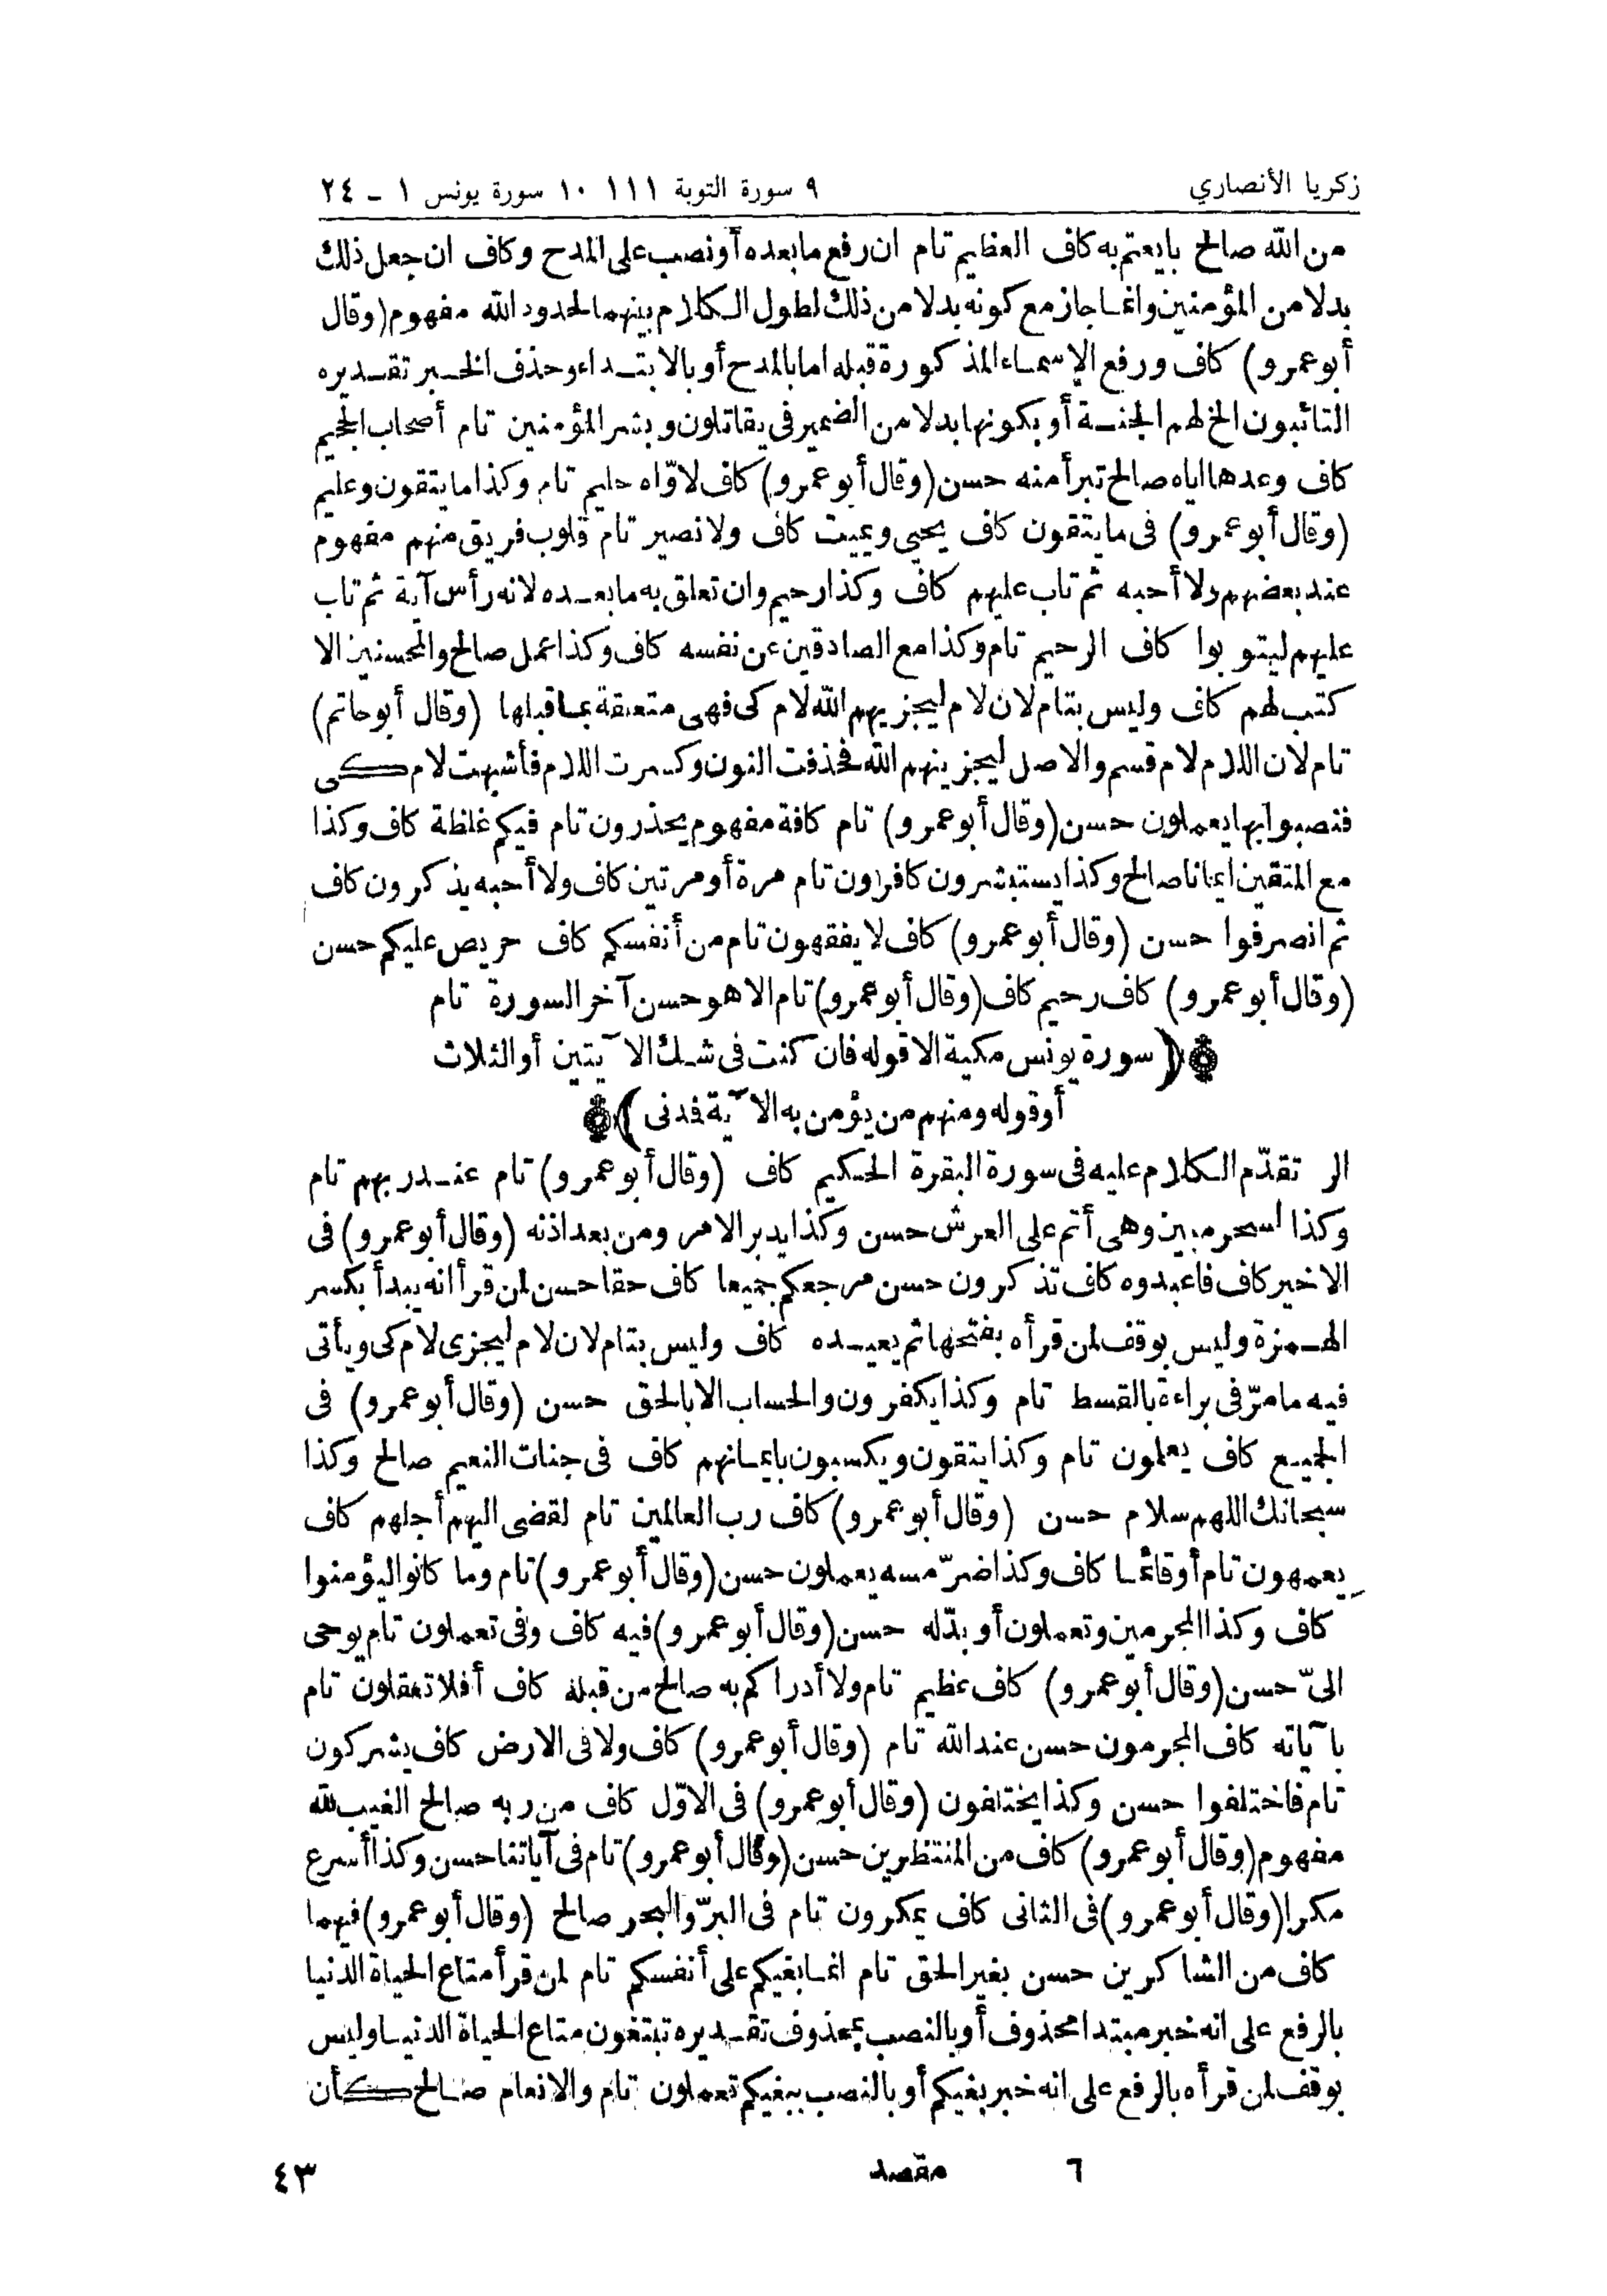 زكريا الأنصاري
٩ سورة التوبة ١١١ ١٠ سورة يونس ١ - ٢٤
من الله صالح بايعتم به كاف العظيم تام ان رفع ما بعده أو نصب على المدح وكاف ان جعل ذلك
بدلا من المؤمنين وانما جاز مع كونه بدلا من ذلك لطول الكلام بينهما لحدود الله مفهوم (وقال
أبو عمرو) كاف ورفع الاسماء المذكورة قبله اما بالمدح أو بالابتداء وحذف الخبر تقديره
التائبون الخ لهم الجنة أو بكونها بدلا من الضمير فى يقاتلون وبشر المؤمنين تام أصحاب الجحيم
كاف وعدها اياه صالح تبرأ منه حسن (وقال أبو عمرو) كاف لاوّاه حليم تام وكذا ما يتقون وعليم
(وقال أبو عمرو) فى ما يتقون كاف يحيى ويميت كاف ولا نصير تام قلوب فريق منهم مفهوم
عند بعضهم ولا أحبه ثم تاب عليهم كاف وكذا رحيم وان تعلق به ما بعده لانه رأس آية ثم تاب
عليهم ليتوبوا كاف الرحيم تام وكذا مع الصادقين عن نفسه كاف وكذا عمل صالح والمحسنين الا
كتب لهم كاف وليس بتام لان لام ليجزيهم الله لام كى فهى متعلقة بما قبلها (وقال أبو حاتم)
تام لان اللام لام قسم والاصل ليجزينهم الله فحذفت النون وكسرت اللام فأشبهت لام كى
فنصبوا بها يعملون حسن (وقال أبو عمرو) تام كافة مفهوم يحذرون تام فيكم غلظة كاف وكذا
مع المتقين ايمانا صالح وكذا يستبشرون كافرون تام مرة أو مرتين كاف ولا أحبه يذكرون كاف
ثم انصرفوا حسن (وقال أبو عمرو) كاف لا يفقهون تام من أنفسكم كاف حريص عليكم حسن
(وقال أبو عمرو) كاف رحيم كاف (وقال أبو عمرو) تام الا هو حسن آخر السورة تام
(سورة يونس مكية الا قوله فان كنت فى شك الآيتين أو الثلاث
أو قوله ومنهم من يؤمن به الآية فمدنى)
الر تقدّم الكلام عليه فى سورة البقرة الحكيم كاف (وقال أبو عمرو) تام عند ربهم تام
وكذا لسحر مبين وهى أتم على العرش حسن وكذا يدبر الامر ومن بعد اذنه (وقال أبو عمرو) فى
الاخير كاف فاعبدوه كاف تذكرون حسن مرجعكم جميعا كاف حقا حسن لمن قرأ انه يبدأ بكسر
الهمزة وليس بوقف لمن قرأه بفتحها ثم يعيده كاف وليس بتام لان لام ليجزى لام كى ويأتى
فيه ما مرّ فى براءة بالقسط تام وكذا يكفرون والحساب الا بالحق حسن (وقال أبو عمرو) فى
الجميع كاف يعلمون تام وكذا يتقون ويكسبون بايمانهم كاف فى جنات النعيم صالح وكذا
سبحانك اللهم سلام حسن (وقال أبو عمرو) كاف رب العالمين تام لقضى اليهم أجلهم كاف
يعمهون تام أو قائما كاف وكذا ضرّ مسه يعملون حسن (وقال أبو عمرو) تام وما كانوا ليؤمنوا
كاف وكذا المجرمين وتعملون أو بدّله حسن (وقال أبو عمرو) فيه كاف وفى تعملون تام يوحى
الىّ حسن (وقال أبو عمرو) كاف عظيم تام ولا أدراكم به صالح من قبله كاف أفلا تعقلون تام
بآياته كاف المجرمون حسن عند الله تام (وقال أبو عمرو) كاف ولا فى الارض كاف يشركون
تام فاختلفوا حسن وكذا يختلفون (وقال أبو عمرو) فى الاوّل كاف من ربه صالح الغيب لله
مفهوم (وقال أبو عمرو) كاف من المنتظرين حسن (وقال أبو عمرو) تام فى آياتنا حسن وكذا أسرع
مكرا (وقال أبو عمرو) فى الثانى كاف يمكرون تام فى البرّ والبحر صالح (وقال أبو عمرو) فيهما
كاف من الشاكرين حسن بغير الحق تام انما بغيكم على أنفسكم تام لمن قرأ متاع الحياة الدنيا
بالرفع على انه خبر مبتدا محذوف أو بالنصب بمحذوف تقديره تبتغون متاع الحياة الدنيا وليس
بوقف لمن قرأه بالرفع على انه خبر بغيكم أو بالنصب ببغيكم تعملون تام والانعام صالح كأن
٦ مقصد
٤٣